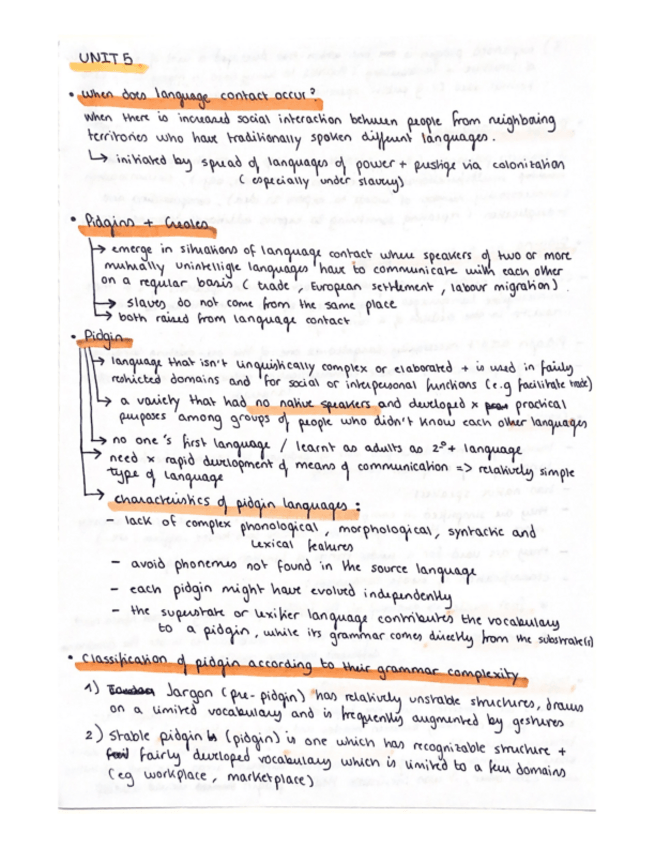 UNIT 5
• when does language contact occur?
when there is increased social interaction between people from neighboring
territories who have traditionally spoken different languages.
↳ initiated by spread of languages of power + prestige via colonization
(especially under slavery)
• Pidgins + Creoles
→ emerge in situations of language contact where speakers of two or more
mutually unintelligle languages have to communicate with each other
on a regular basis (trade, European settlement, labour migration).
→ slaves do not come from the same place
→ both raised from language contact
• Pidgin
→ language that isn't linguistically complex or elaborated + is used in fairly
restricted domains and for social or interpersonal functions (e.g facilitate trade)
→ a variety that had no native speakers and developed x practical
purposes among groups of people who didn't know each other languages
→ no one's first language / learnt as adults as 2nd+ language
→ need x rapid development of means of communication => relatively simple
type of language
→ characteristics of pidgin languages:
- lack of complex phonological, morphological, syntactic and
lexical features
- avoid phonemes not found in the source language
- each pidgin might have evolved independently
- the superstate or lexifier language contributes the vocabulary
to a pidgin, while its grammar comes directly from the substrate(s)
• Classification of pidgin according to their grammar complexity
1) Jargon (pre-pidgin) has relatively unstable structures, draws
on a limited vocabulary and is frequently augmented by gestures
2) Stable pidgin (pidgin) is one which has recognizable structure +
fairly developed vocabulary which is limited to a few domains
(eg workplace, marketplace)